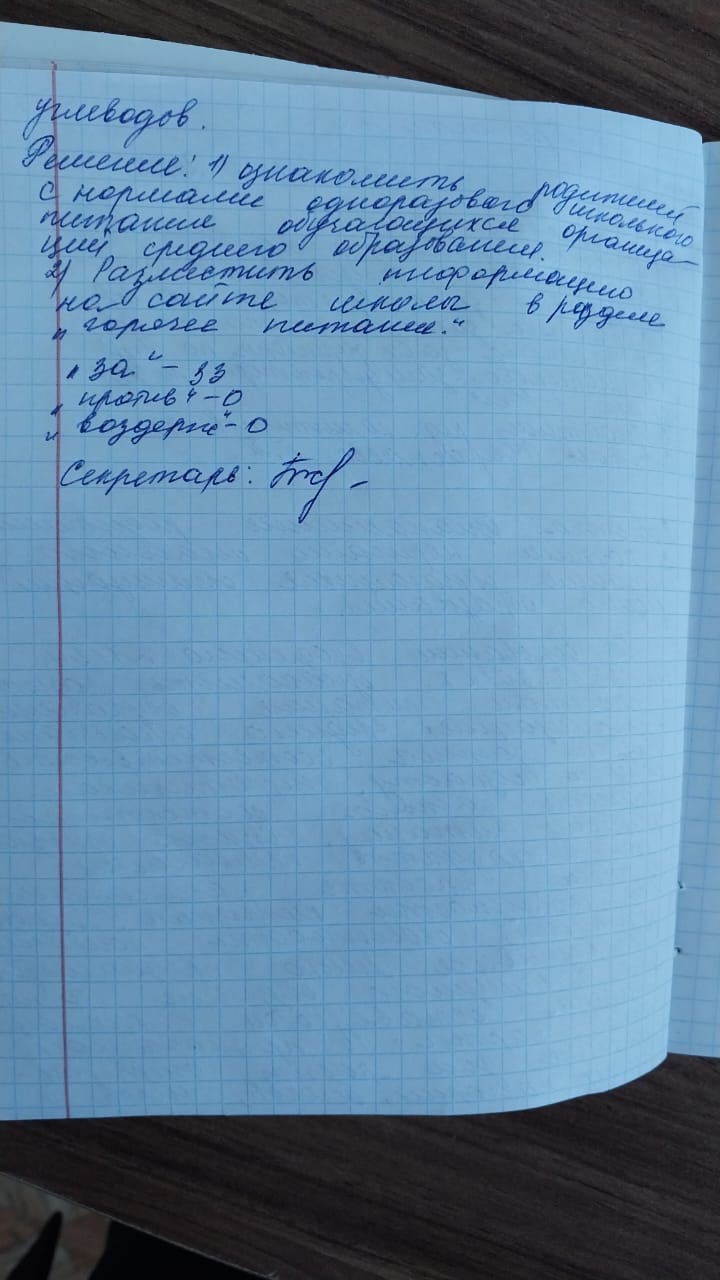 углеводов.
Решение: 1) ознакомить родителей
с нормами одноразового школьного
питания обучающихся организа-
ций среднего образования.
2) Разместить информацию
на сайте школы в разделе
„горячее питание."
„за" – 33
„против" – 0
„воздерж" – 0
Секретарь: